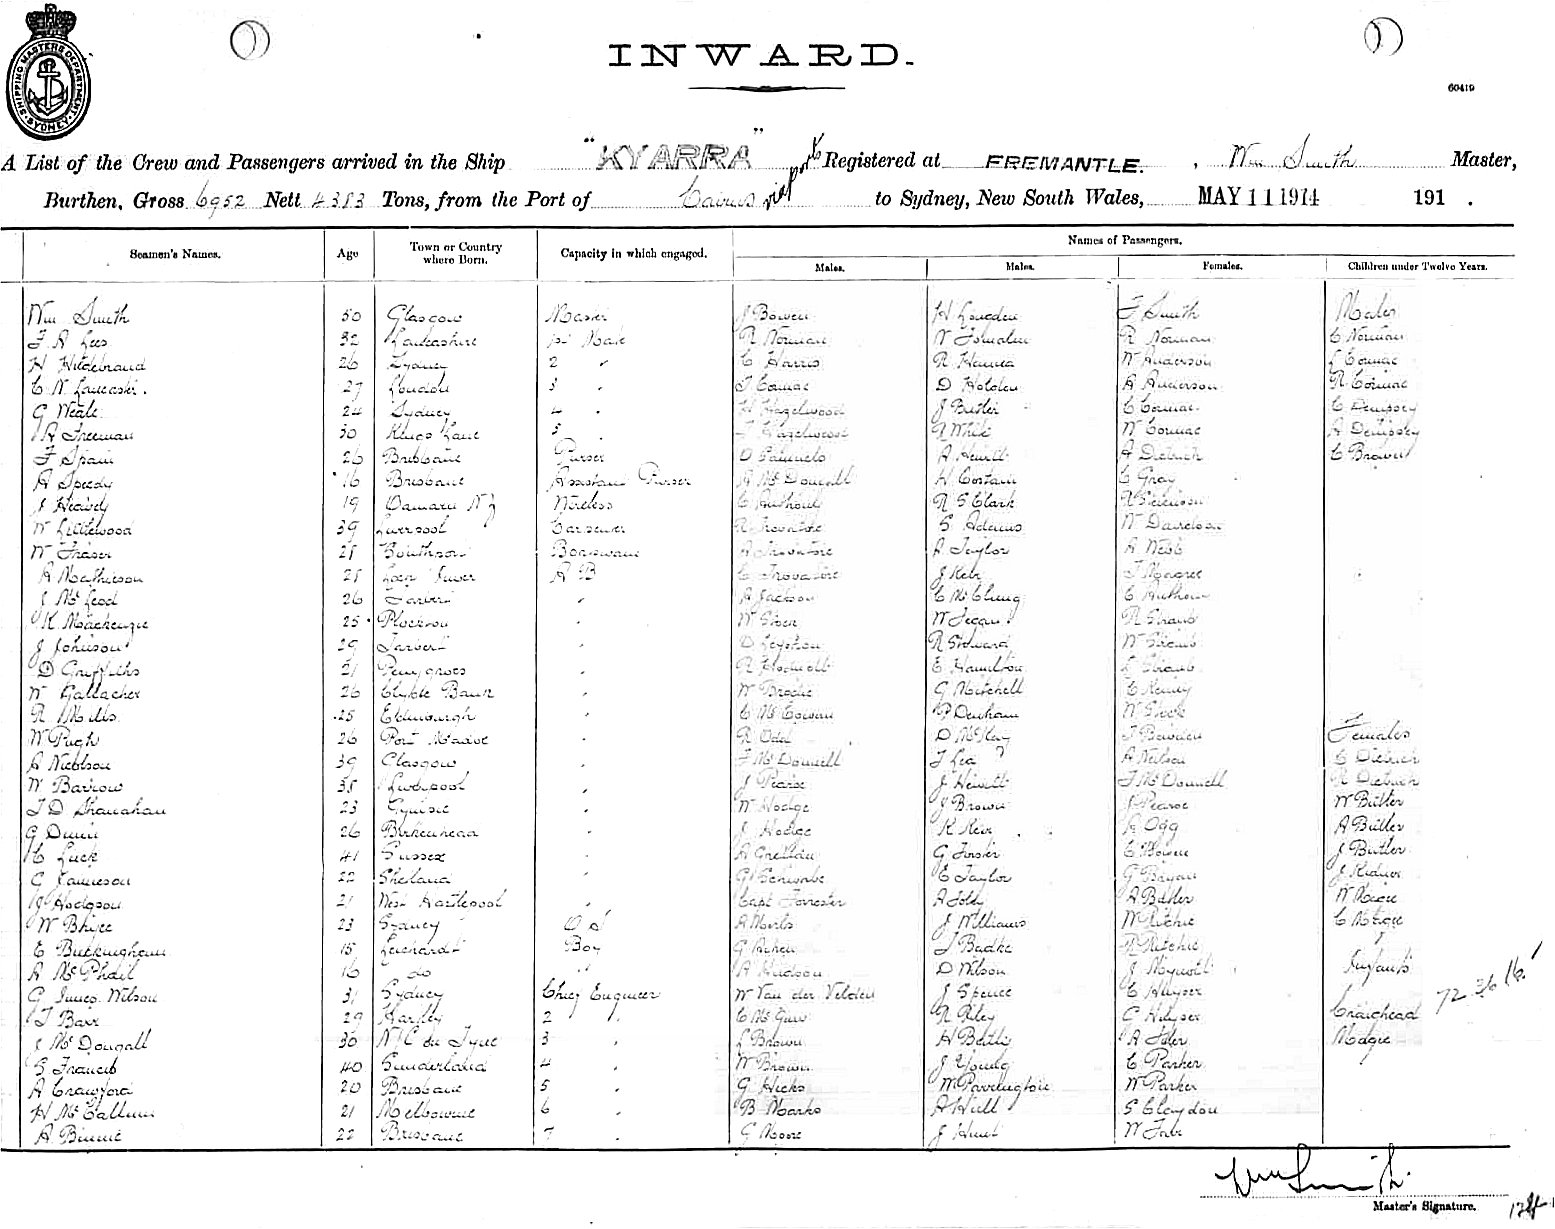 SHIPPING MASTERS DEPARTMENT SYDNEY
INWARD.
60419
A List of the Crew and Passengers arrived in the Ship "KYARRA" Registered at FREMANTLE. , Wm Smith Master,
Burthen, Gross 6952 Nett 4383 Tons, from the Port of Cairns via ports to Sydney, New South Wales, MAY 11 1914 191 .
Seamen's Names. Age Town or Country where Born. Capacity in which engaged. Names of Passengers.
Males. Males. Females. Children under Twelve Years.
Wm Smith 50 Glasgow Master J Bowen H Lousden F Smith Males
F A Lees 32 Lancashire 1st Mate R Norman R Norman C Norman
H Hildebrand 26 Sydney 2 " C Harris R Hanna W Anderson L Cormac
C N Lancaster. 27 London 3 " T Cormac D Holden A Anderson R Cormac
G Weale 24 Sydney 4 " H Hazelwood J Butler C Cormac C Dempsey
A Freeman 30 Kings Lane 5 " F Hazelwood R White W Cormac A Dempsey
F Spain 26 Brisbane Purser A Hewitt A Dietrich C Brown
A Speedy 16 Brisbane Assistant Purser A McDonnell H Costain C Gray
J Heavey 19 Oamaru NZ Wireless C Anthony R S Clark
W Littlewood 39 Liverpool Carpenter R Trovatore S Adams W Davidson
W Fraser 28 Boatswain A Trovatore A Taylor A Webb
A Mathieson 28 A B C Trovatore J Keir
J McLeod 26 Tarbert " A Jackson C McClung C Anthony
K Mackenzie 25 Plockton " W Steen R Straub
J Johnson 29 Tarbert " D Leyshon R Steward W Straub
D Griffiths 21 Penygroes " E Hamilton L Straub
W Gallacher 26 Clyde Bank " W Brodie G Mitchell C Kenny
R Mills 25 Edinburgh " C McEowan P Denham
W Pugh 26 Port Madoc " R Odd D McKay J Bowden Females
A Nicolson 39 Glasgow " F McDonnell F Lea A Neilson C Dietrich
W Barrow 38 Liverpool " J Pearse J Hewitt F McDonnell R Dietrich
T D Shanahan 23 Gympie " W Hodge J Brown J Pearse W Butler
G Dunn 26 Birkenhead " J Hodge K Keir A Ogg A Butler
C Luck 41 Sussex " G Forster C Bowen J Butler
G Jamieson 22 Shetland " E Taylor G Bryan
J Hodgson 21 West Hartlepool " Capt Forrester A Butler
W Bhyee 23 Sydney O S J Williams W Ritchie
E Buckingham 15 Leichardt Boy T Badke R Ritchie
A McPhail 16 do " A Hudson D Wilson Infants
G Innes Wilson 31 Sydney Chief Engineer W Van der Velden J Spence C Huyser
T Barr 29 2 " R Riley C Huyser Craighead
J McDougall 30 N/C on Tyne 3 " L Brown
S Francis 40 Sunderland 4 " W Brown J Young C Parker
A Crawford 20 Brisbane 5 " G Hicks W Parrington W Parker
H McCallum 21 Melbourne 6 " B Marks A Hill S Claydon
A Binnie 22 Brisbane 7 " G Moore J Hunt
72 36 16
Wm Smith
Master's Signature.
124